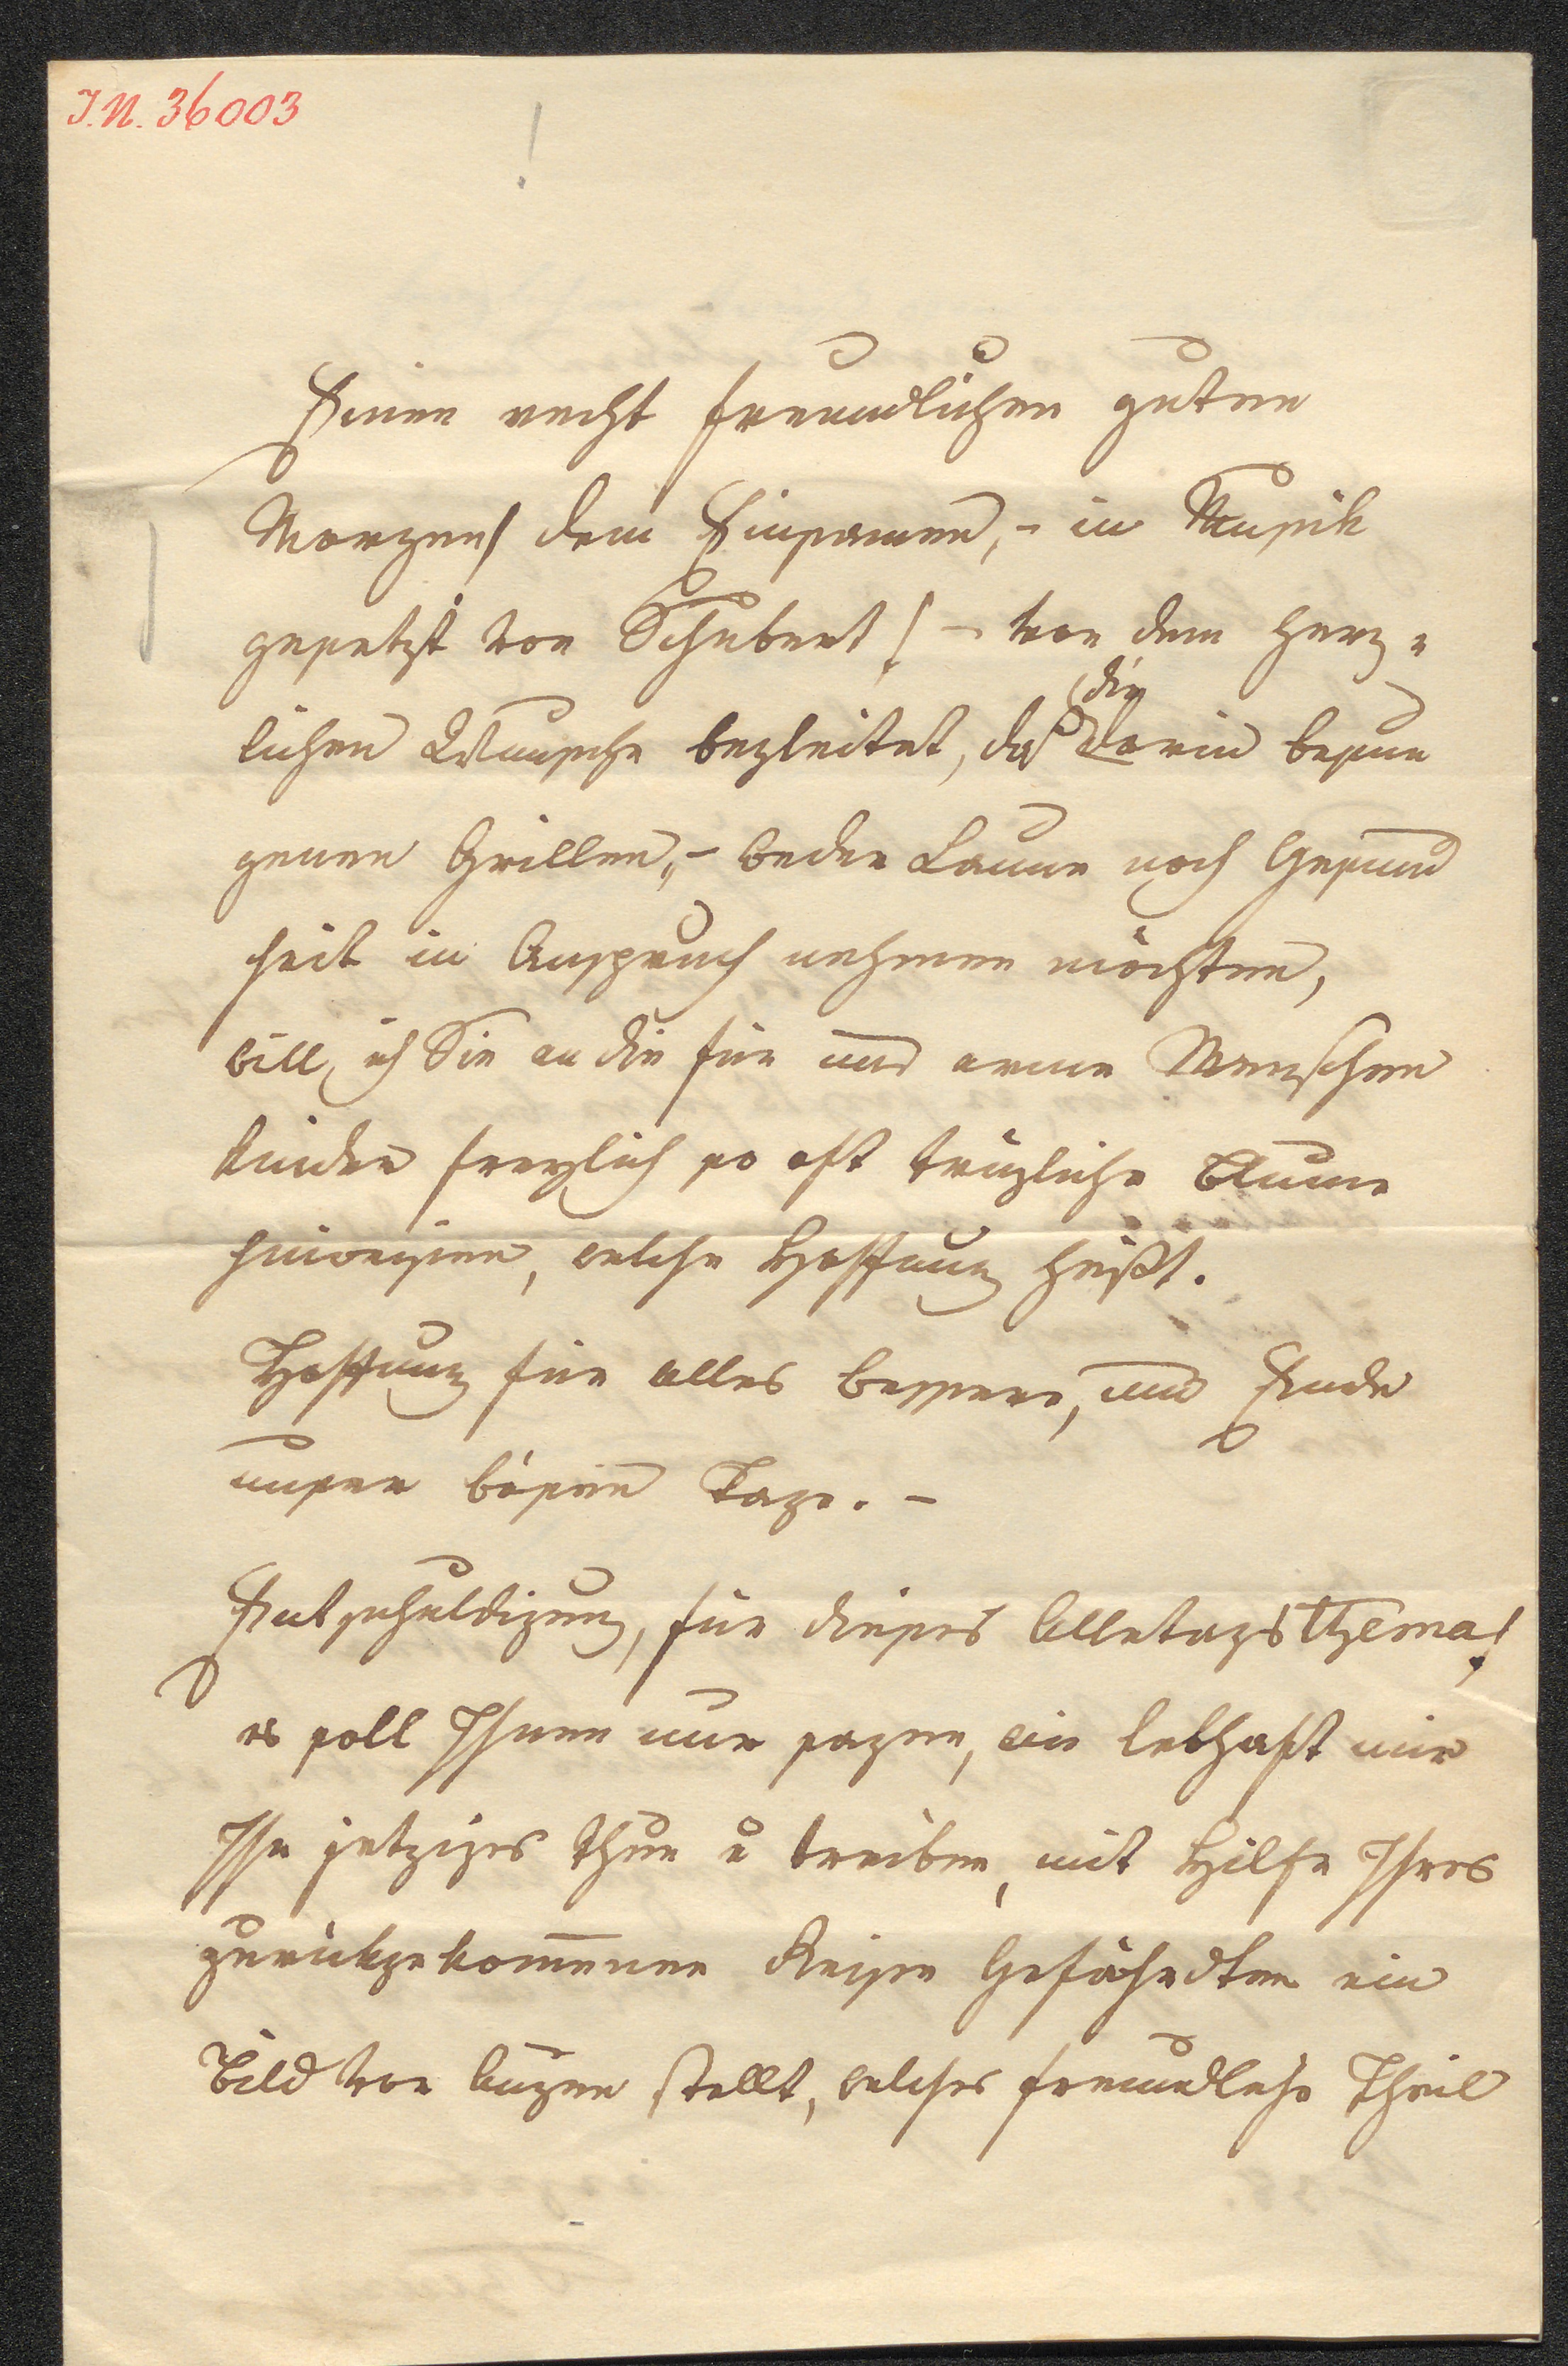 I.N. 36003
!
Einen recht freundlichen guten
Morgen! dem Einsamen, – in Musik
gesetzt von Schubert! – von dem herz=
lichen Wunsche begleitet, daß die darin besun
genen Grillen, – weder Laune noch Gesund
heit in Anspruch nehmen möchten,
will ich Sie an die für uns arme Menschen
kinder freylich so oft trügliche Blume
hinweisen, welche Hoffnung heißt.
Hoffnung für alles bessere, und Ende
unser bösen Tage. –
Entschuldigung, für dieses Alletags Thema!
es soll Ihnen nur sagen, wie lebhaft mir
Ihr jetziges Thun u treiben, mit Hilfe Ihres
zurückgekommenen Reise Gefährdten ein
Bild vor Augen stellt, welches freundliche Theil